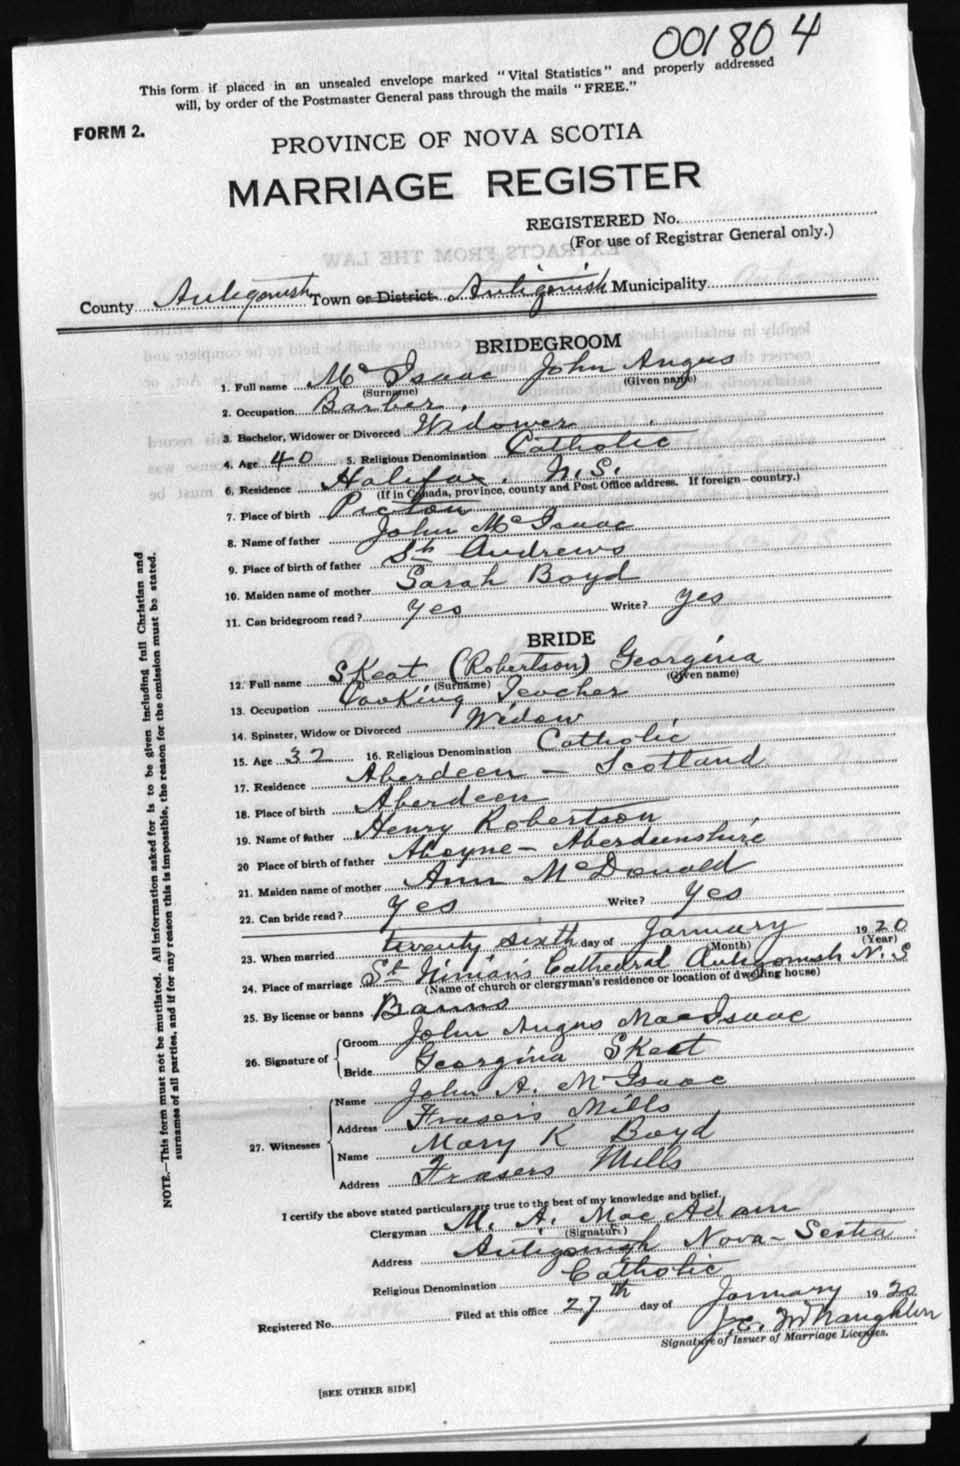 001804
This form if placed in an unsealed envelope marked "Vital Statistics" and properly addressed
will, by order of the Postmaster General pass through the mails "FREE."
FORM 2.
PROVINCE OF NOVA SCOTIA
MARRIAGE REGISTER
REGISTERED No.
(For use of Registrar General only.)
EXTRACTS FROM THE LAW
County Antigonish Town or District Antigonish Municipality
BRIDEGROOM
1. Full name Mc Isaac John Angus
(Surname) (Given name)
2. Occupation Barber.
3. Bachelor, Widower or Divorced Widower
4. Age 40 5. Religious Denomination Catholic
6. Residence Halifax, N.S.
(If in Canada, province, county and Post Office address. If foreign—country.)
7. Place of birth Pictou
8. Name of father John McIsaac
9. Place of birth of father St Andrews
10. Maiden name of mother Sarah Boyd
11. Can bridegroom read? Yes Write? Yes
BRIDE
12. Full name Skeat (Robertson) Georgina
(Surname) (Given name)
13. Occupation Cooking Teacher
14. Spinster, Widow or Divorced Widow
15. Age 32 16. Religious Denomination Catholic
17. Residence Aberdeen – Scotland
18. Place of birth Aberdeen
19. Name of father Henry Robertson
20 Place of birth of father Aboyne – Aberdeenshire
21. Maiden name of mother Ann McDonald
22. Can bride read? Yes Write? Yes
23. When married twenty sixth day of January 1920
(Month) (Year)
24. Place of marriage St Ninian's Cathedral Antigonish N.S
(Name of church or clergyman's residence or location of dwelling house)
25. By license or banns Banns
26. Signature of Groom John Angus MacIsaac
Bride Georgina Skeat
27. Witnesses Name John A. McIsaac
Address Frasers Mills
Name Mary K Boyd
Address Frasers Mills
I certify the above stated particulars are true to the best of my knowledge and belief.
Clergyman M. A. MacAdam
(Signature)
Address Antigonish Nova-Scotia
Religious Denomination Catholic
Registered No. Filed at this office 27th day of January 1920
J.E. McNaughton
Signature of Issuer of Marriage Licenses.
[SEE OTHER SIDE]
NOTE.—This form must not be mutilated. All information asked for is to be given including full Christian and
surnames of all parties, and if for any reason this is impossible, the reason for the omission must be stated.